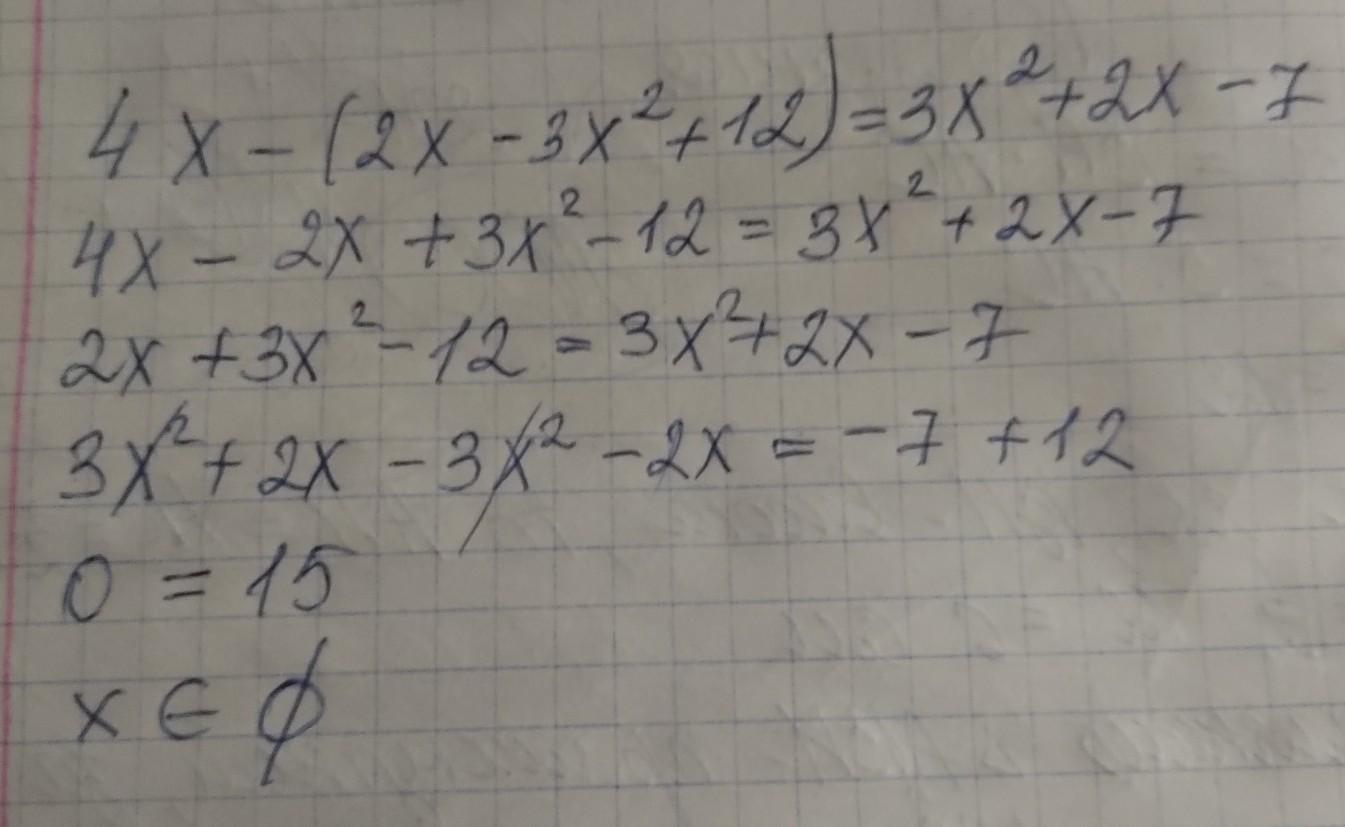 4x - (2x - 3x² + 12) = 3x² + 2x - 7
4x - 2x + 3x² - 12 = 3x² + 2x - 7
2x + 3x² - 12 = 3x² + 2x - 7
3x² + 2x - 3x² - 2x = -7 + 12
0 = 15
x ∈ ∅